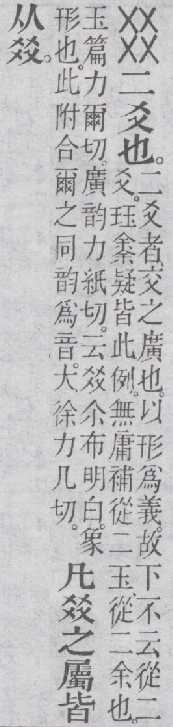 㸚 二爻也。二爻者交之廣也。以形爲義。故下不云從二
爻。玨疑皆此例。無庸補從二玉從二余也。
玉篇力爾切。廣韵力紙切。云㸚尒布明白。象
形也。此附合爾之同韵爲音。大徐力几切。凡㸚之屬皆
从㸚。